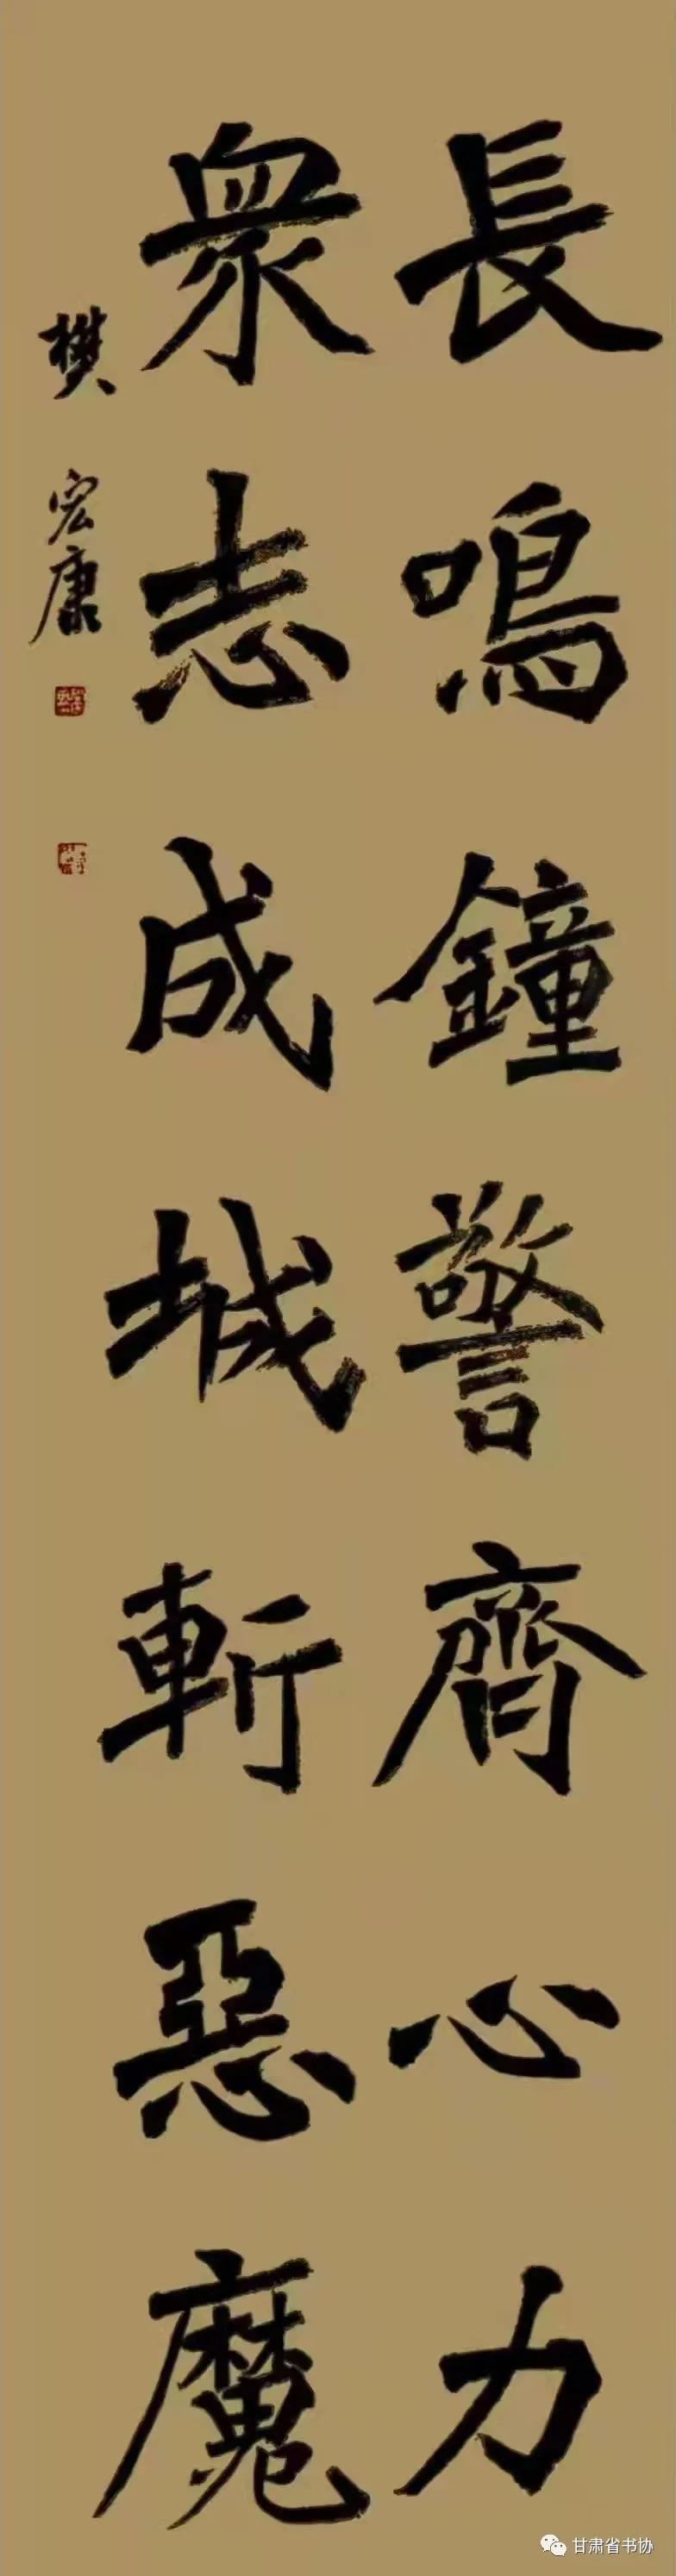 長鳴鐘警齊心力
衆志成城斬惡魔
樊宏康
甘肃省书协